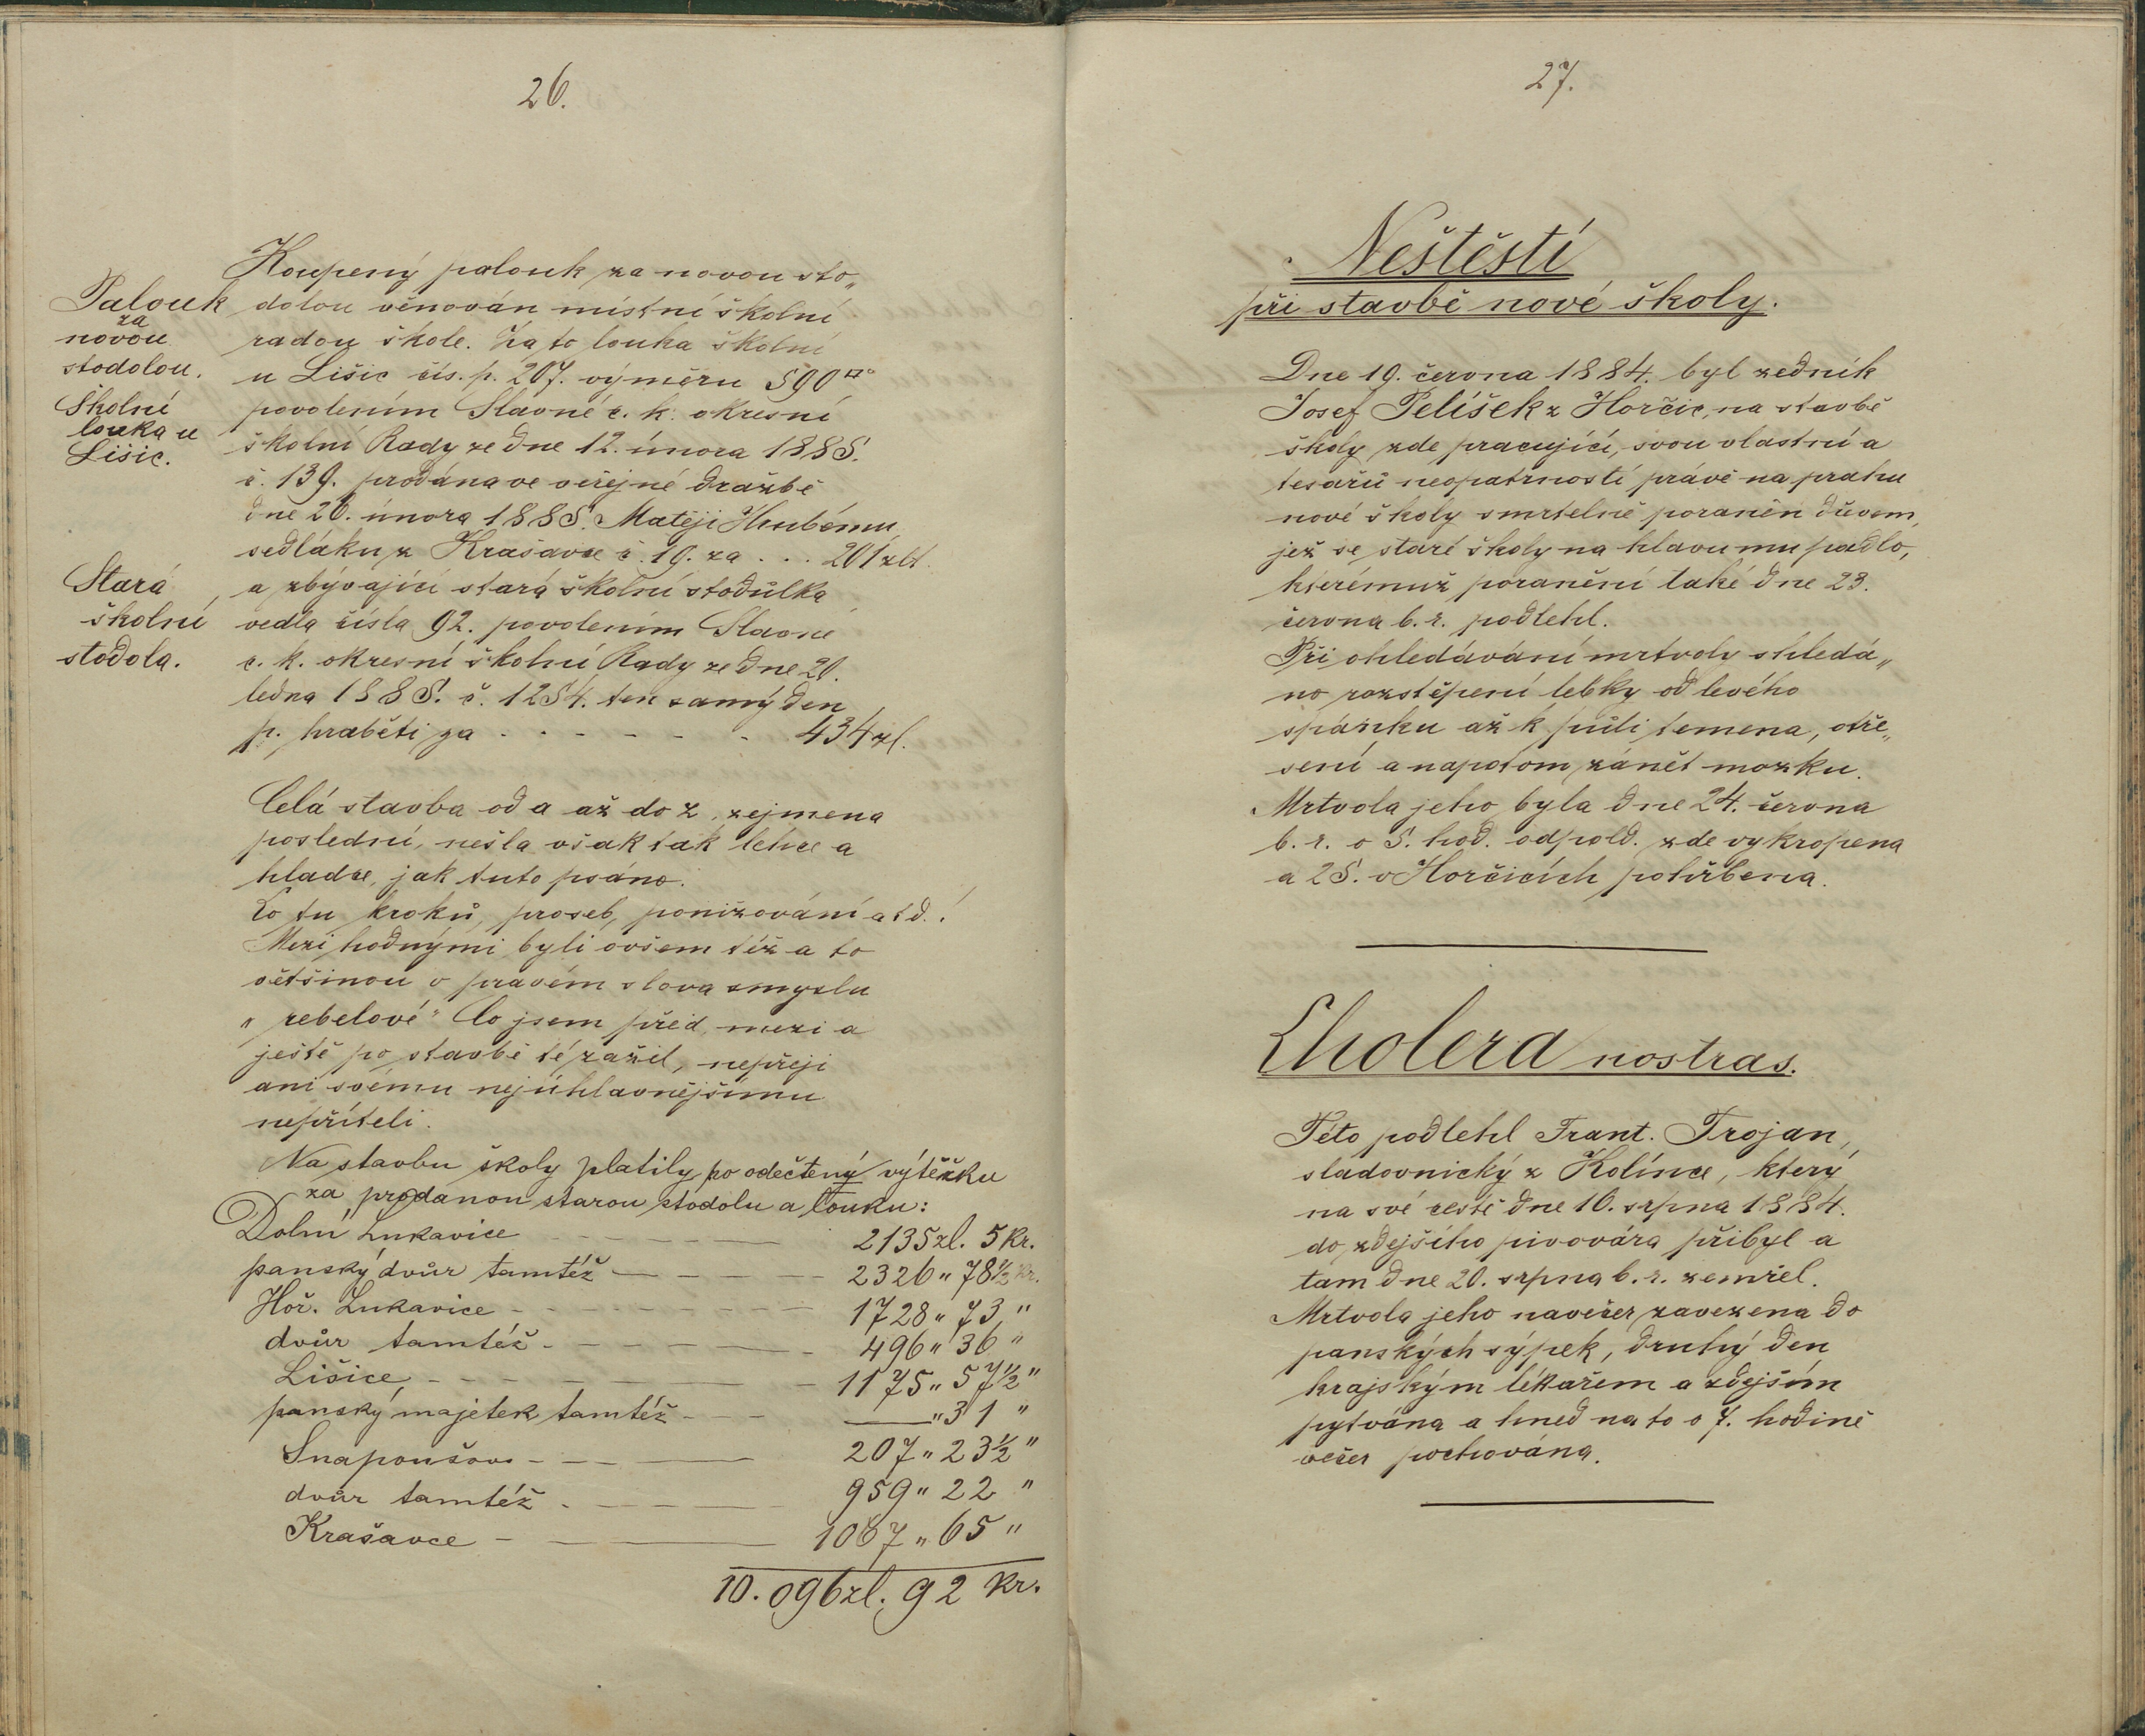 26.
Koupený palouk za novou sto„
dolou věnován místní školní
radou škole. Za to louka školní
u Lišic čís. p. 207. výměru 590□°
povolením Slavné c. k. okresní
školní Rady ze dne 12. února 1885.
č. 139. prodána ve veřejné dražbě
dne 26. února 1885. Matěji Hrubému,
sedláku z Krašavce č. 19. za . . . 201 zlt.
a zbývající stará školní stodůlka
vedla čísla 92. povolením Slavné
c. k. okresní školní Rady ze dne 20.
ledna 1885. č. 1254. ten samý den
p. hraběti za . . . . . . 434 zl.
Palouk
za
novou
stodolou.
Školní
louka u
Lišic.
Stará
školní
stodola.
Celá stavba od a až do z, zejmena
poslední, nešla však tak lehce a
hladce, jak tuto psáno.
Co tu kroků, proseb, ponižování atd.!
Mezi hodnými byli ovšem též a to
většinou v pravém slova smyslu
„rebelové" Co jsem před, mezi a
ještě po stavbě té zažil, nepřeji
ani svému nejúhlavnějšímu
nepříteli.
Na stavbu školy platily po odečtený výtěžku
za prodanou starou stodolu a louku:
Dolní Lukavice - - - - - 2135 zl. 5 Kr.
panský dvůr tamtéž - - - - 2326 „ 78½ Kr.
Hoř. Lukavice - - - - - - 1728 „ 73 „
dvůr tamtéž - - - - - - 496 „ 36 „
Lišice - - - - - - 1175 „ 57½ „
panský majetek tamtéž - - - — „ 31 „
Snapoušov - - - - 207 „ 23½ „
dvůr tamtéž - - - - 959 „ 22 „
Krašavce - - - 1067 „ 65 „
10.096 zl. 92 Kr.
27.
Neštěstí
při stavbě nové školy.
Dne 19. června 1884. byl zedník
Josef Pelíšek z Horčic, na stavbě
školy zde pracující, svou vlastní a
tesařů neopatrností právě na prahu
nové školy smrtelně poraněn dřevem,
jež se staré školy na hlavu mu padlo,
kterémuž poranění také dne 23.
června b. r. podlehl.
Při ohledávání mrtvoly shledá„
no rozštěpení lebky od levého
spánku až k půli temena, otře„
sení a napotom zánět mozku.
Mrtvola jeho byla dne 24. června
b. r. o 5. hod. odpold. zde vykropena
a 25. v Horčicích pohřbena.
Cholera nostras.
Této podlehl Frant. Trojan,
sladovnický z Kolínce, který
na své cestě dne 16. srpna 1884.
do zdejšího pivovára přibyl a
tam dne 20. srpna b. r. zemřel.
Mrtvola jeho navečer zavezena do
panských sýpek, druhý den
krajským lékařem a zdejším
pytvána a hned na to o 7. hodině
večer pochována.